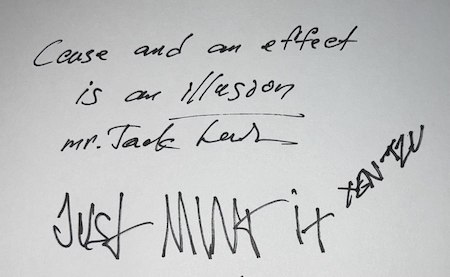 Cause and an effect
is an illusion
mr. Jack
Just MINT it
XEN TZU